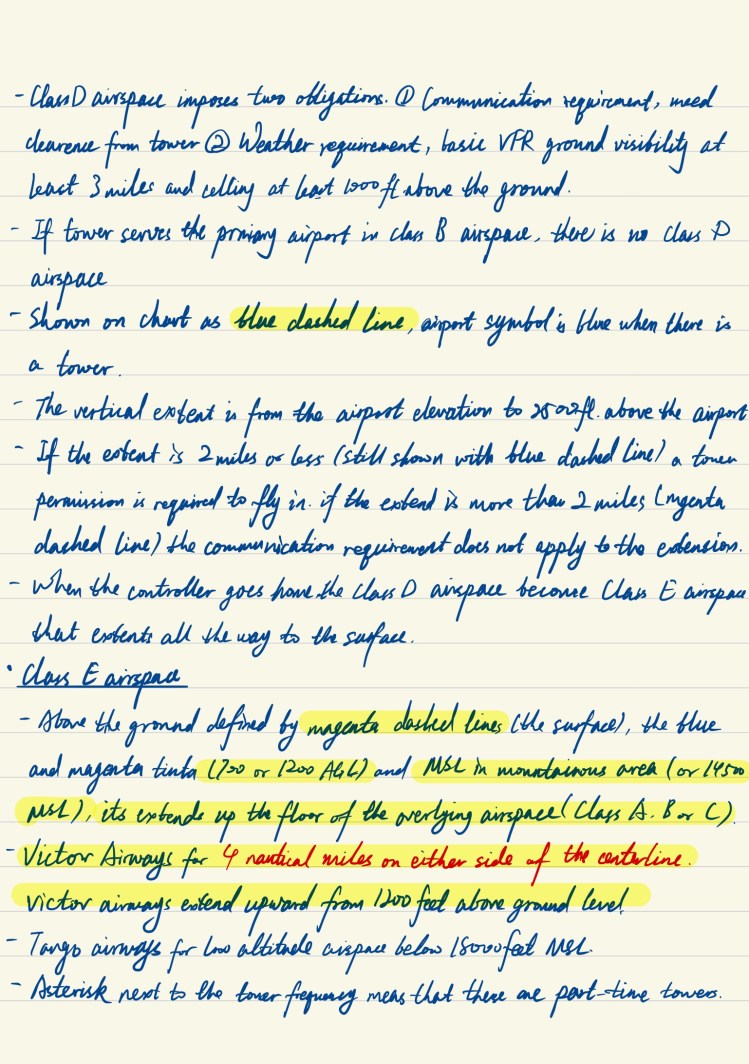 - Class D airspace imposes two obligations. ① Communication requirement, need
clearence from tower ② Weather requirement, basic VFR ground visibility at
least 3 miles and celling at least 1000 ft above the ground.
- If tower serves the primary airport in class B airspace, there is no class D
airspace
- Shown on chart as blue dashed line, airport symbol is blue when there is
a tower.
- The vertical extent is from the airport elevation to 2500 ft. above the airport
- If the extent is 2 miles or less (still shown with blue dashed line) a tower
permission is required to fly in. if the extend is more than 2 miles (mgenta
dashed line) the communication requirement does not apply to the extension.
- When the controller goes home the class D airspace become Class E airspace
that extents all the way to the surface.
• Class E airspace
- Above the ground defined by magenta dashed lines (the surface), the blue
and magenta tints (700 or 1200 AGL) and MSL in mountainous area (or 14500
MSL), its extends up the floor of the overlying airspace (Class A. B or C).
- Victor Airways for 4 nautical miles on either side of the centerline.
Victor airways extend upward from 1200 feet above ground level.
- Tango airways for low altitude airspace below 18000 feet MSL.
- Asterisk next to the tower frequency means that these are part-time towers.